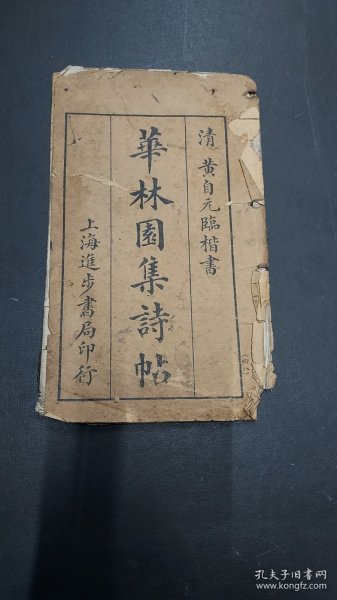 清 黄自元臨楷書
華林園集詩帖
上海進步書局印行
孔夫子旧书网
www.kongfz.com